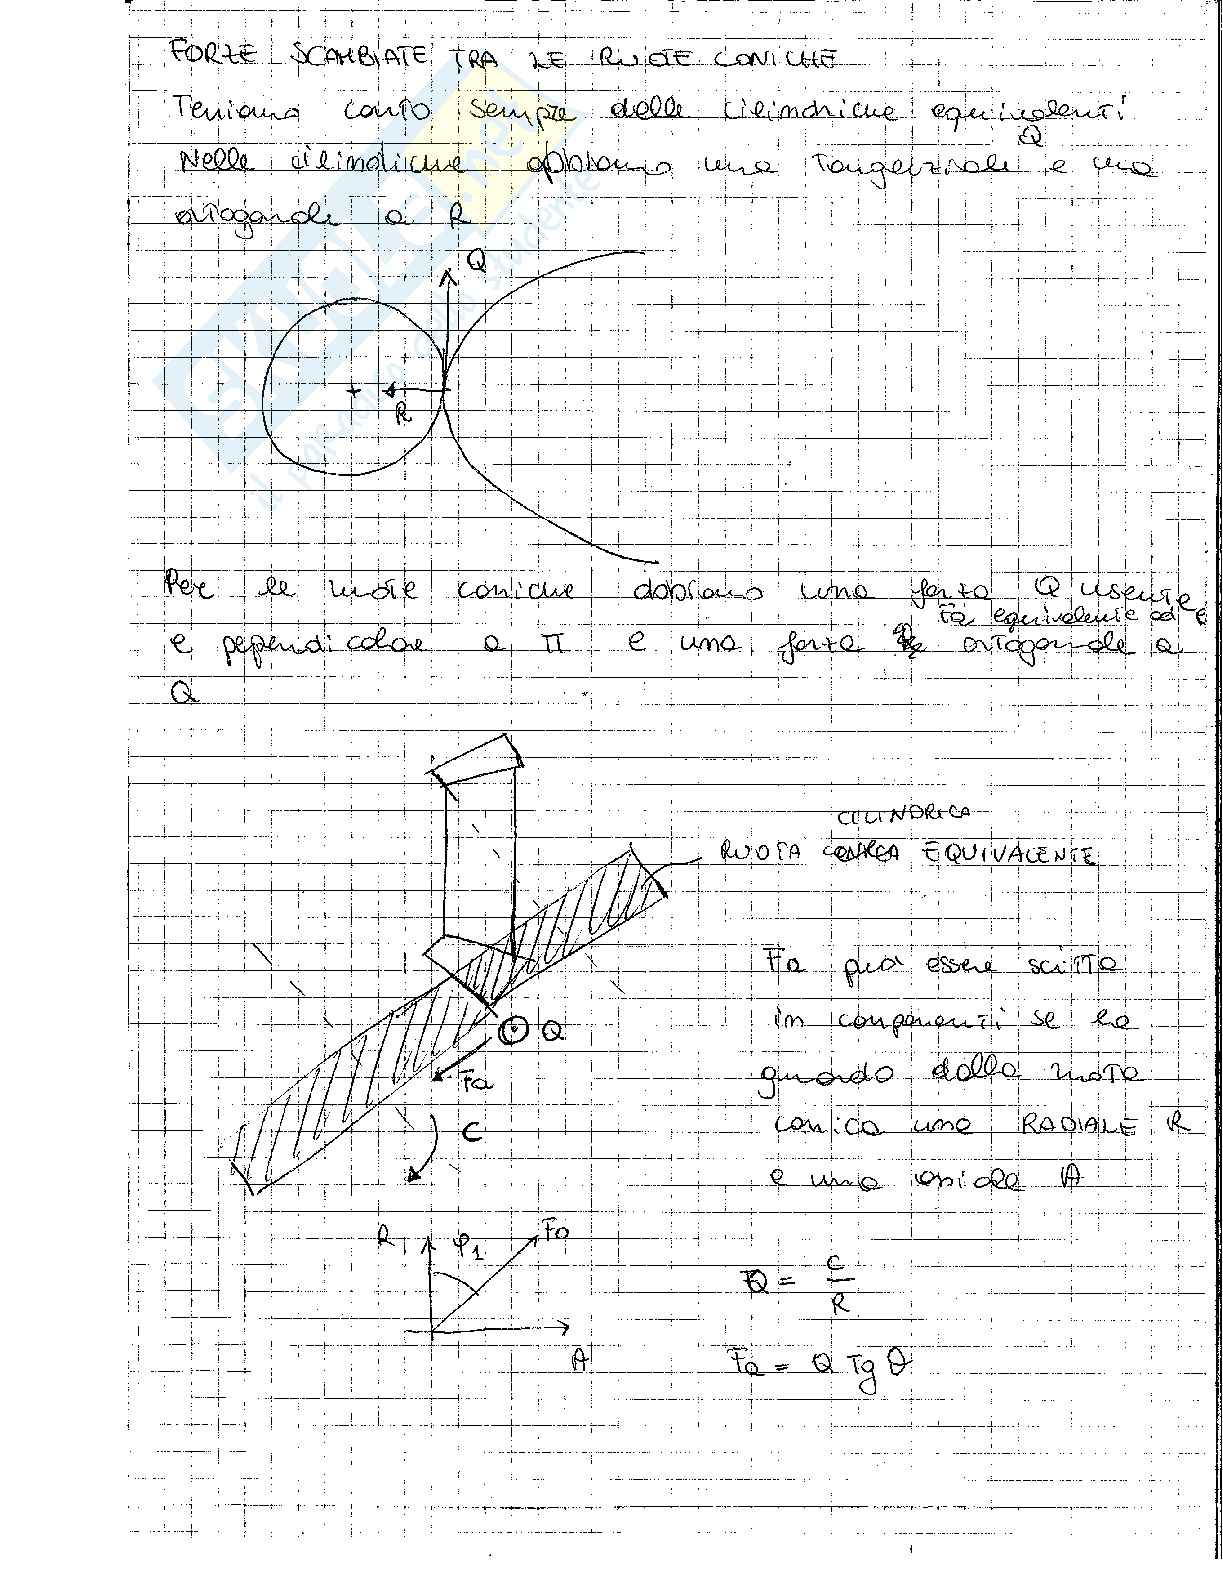 FORZE SCAMBIATE TRA LE RUOTE CONICHE
Teniamo conto sempre delle cilindriche equivalenti
Nelle cilindriche abbiamo una Tangenziale Q e una
ortogonale a R
Q
R
Per le ruote coniche abbiamo una forza Q uscente
e pependicolare a π e una forza Fa equivalente ad e ortogonale a
Q
CILINDRICA
RUOTA EQUIVALENTE
Fa può essere scritta
in componenti se la
guardo dalla ruota
conica una RADIALE R
e una assiale A
Q
Fa
C
R
φ1
Fa
A
Q = C/R
Fa = Q Tg θ